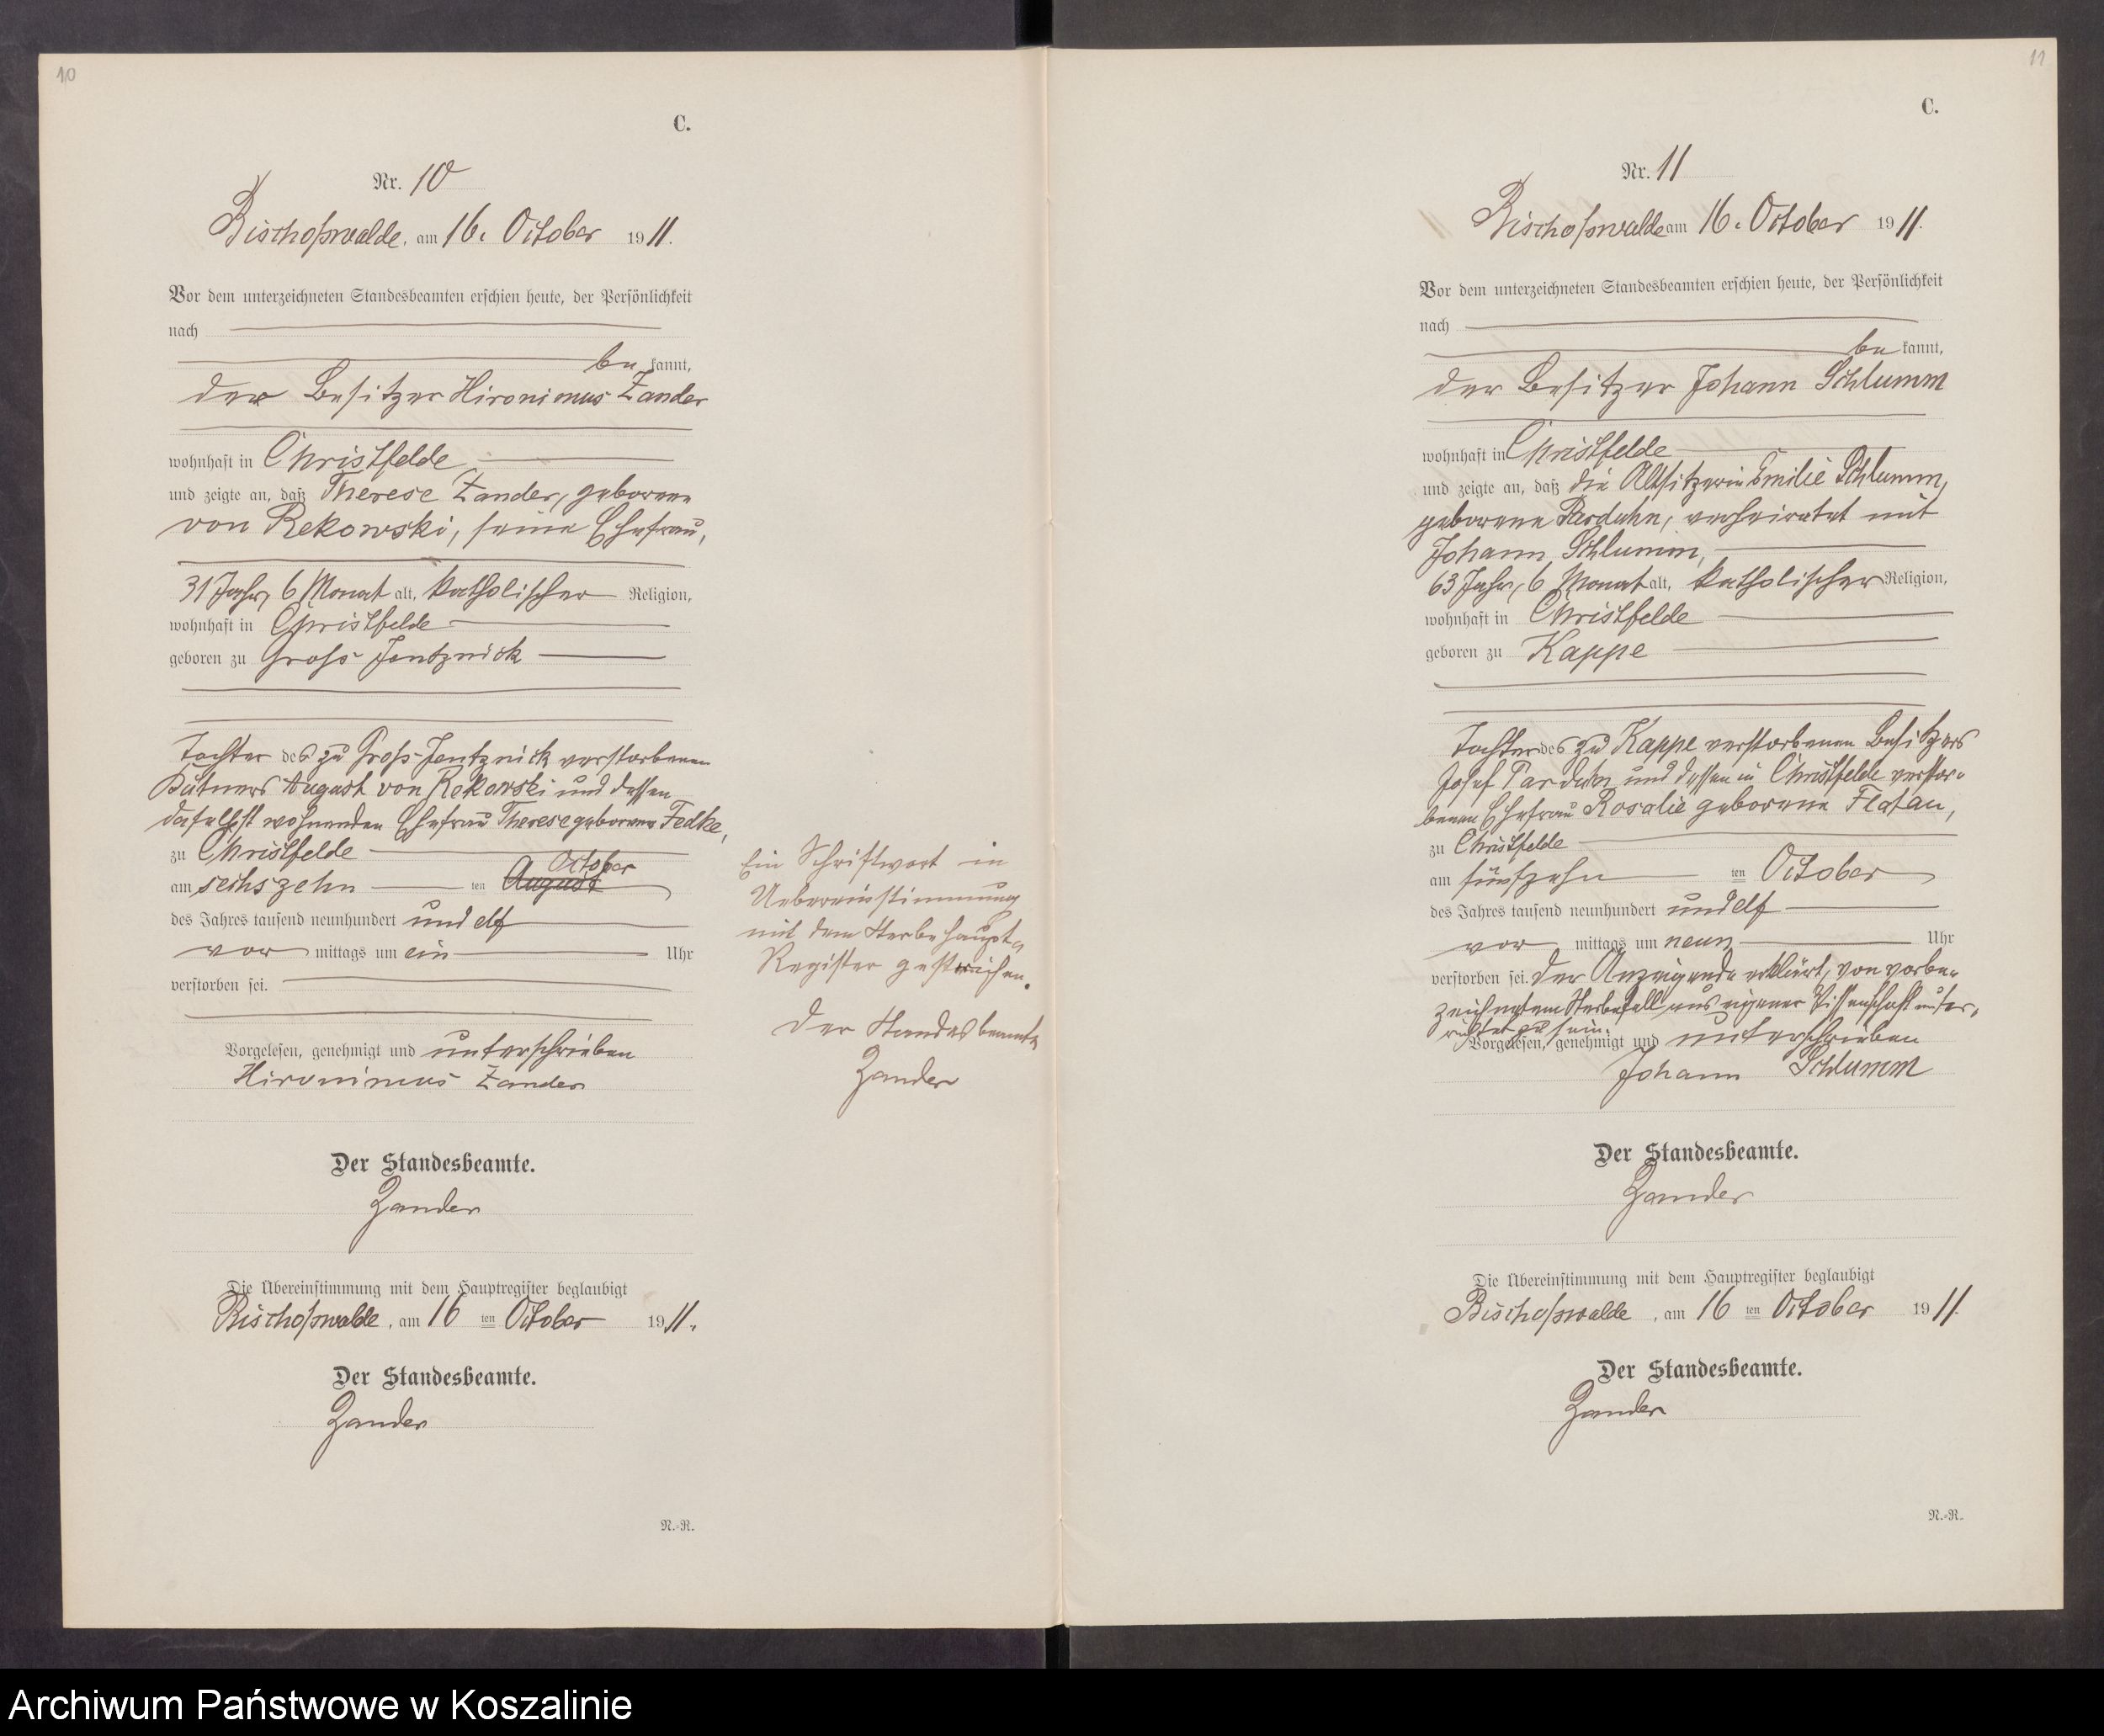 10
C.
Nr. 10
Bischofswalde, am 16. October 1911.
Vor dem unterzeichneten Standesbeamten erschien heute, der Persönlichkeit
nach
be kannt,
der Besitzer Hironimus Zander
wohnhaft in Christfelde
und zeigte an, daß Therese Zander, geborene
von Rekowski, seine Ehefrau,
31 Jahr, 6 Monat alt, katholischer Religion,
wohnhaft in Christfelde
geboren zu Groß-Jentznick
Tochter des zu Groß-Jentznick verstorbenen
Kätners August von Rekowski und dessen
daselbst wohnenden Ehefrau Therese geborene Fedke,
zu Christfelde
October
am sechszehn ten August
des Jahres tausend neunhundert und elf
vor mittags um ein Uhr
verstorben sei.
Vorgelesen, genehmigt und unterschrieben
Hironimus Zander
Der Standesbeamte.
Zander
Die Übereinstimmung mit dem Hauptregister beglaubigt
Bischofswalde, am 16 ten October 1911.
Der Standesbeamte.
Zander
N.-R.
Ein Schriftwort in
Uebereinstimmung
mit dem Sterbehaupt-
Register gestrichen.
Der Standesbeamte
Zander
11
C.
Nr. 11
Bischofswalde am 16. October 1911.
Vor dem unterzeichneten Standesbeamten erschien heute, der Persönlichkeit
nach
be kannt,
der Besitzer Johann Schlumm
wohnhaft in Christfelde
und zeigte an, daß die Altsitzerin Emilie Schlumm,
geborene Parduhn, verheiratet mit
Johann Schlumm,
63 Jahr, 6 Monat alt, katholischer Religion,
wohnhaft in Christfelde
geboren zu Kappe
Tochter des zu Kappe verstorbenen Besitzers
Josef Parduhn und dessen in Christfelde verstor-
benen Ehefrau Rosalie geborene Flatau,
zu Christfelde
am fünfzehn ten October
des Jahres tausend neunhundert und elf
vor mittags um neun Uhr
verstorben sei. Der Anzeigende erklärt, von vorbe-
zeichnetem Sterbefall aus eigener Wissenschaft unter-
richtet zu sein.
Vorgelesen, genehmigt und unterschrieben
Johann Schlumm
Der Standesbeamte.
Zander
Die Übereinstimmung mit dem Hauptregister beglaubigt
Bischofswalde, am 16 ten October 1911.
Der Standesbeamte.
Zander
N.-R.
Archiwum Państwowe w Koszalinie